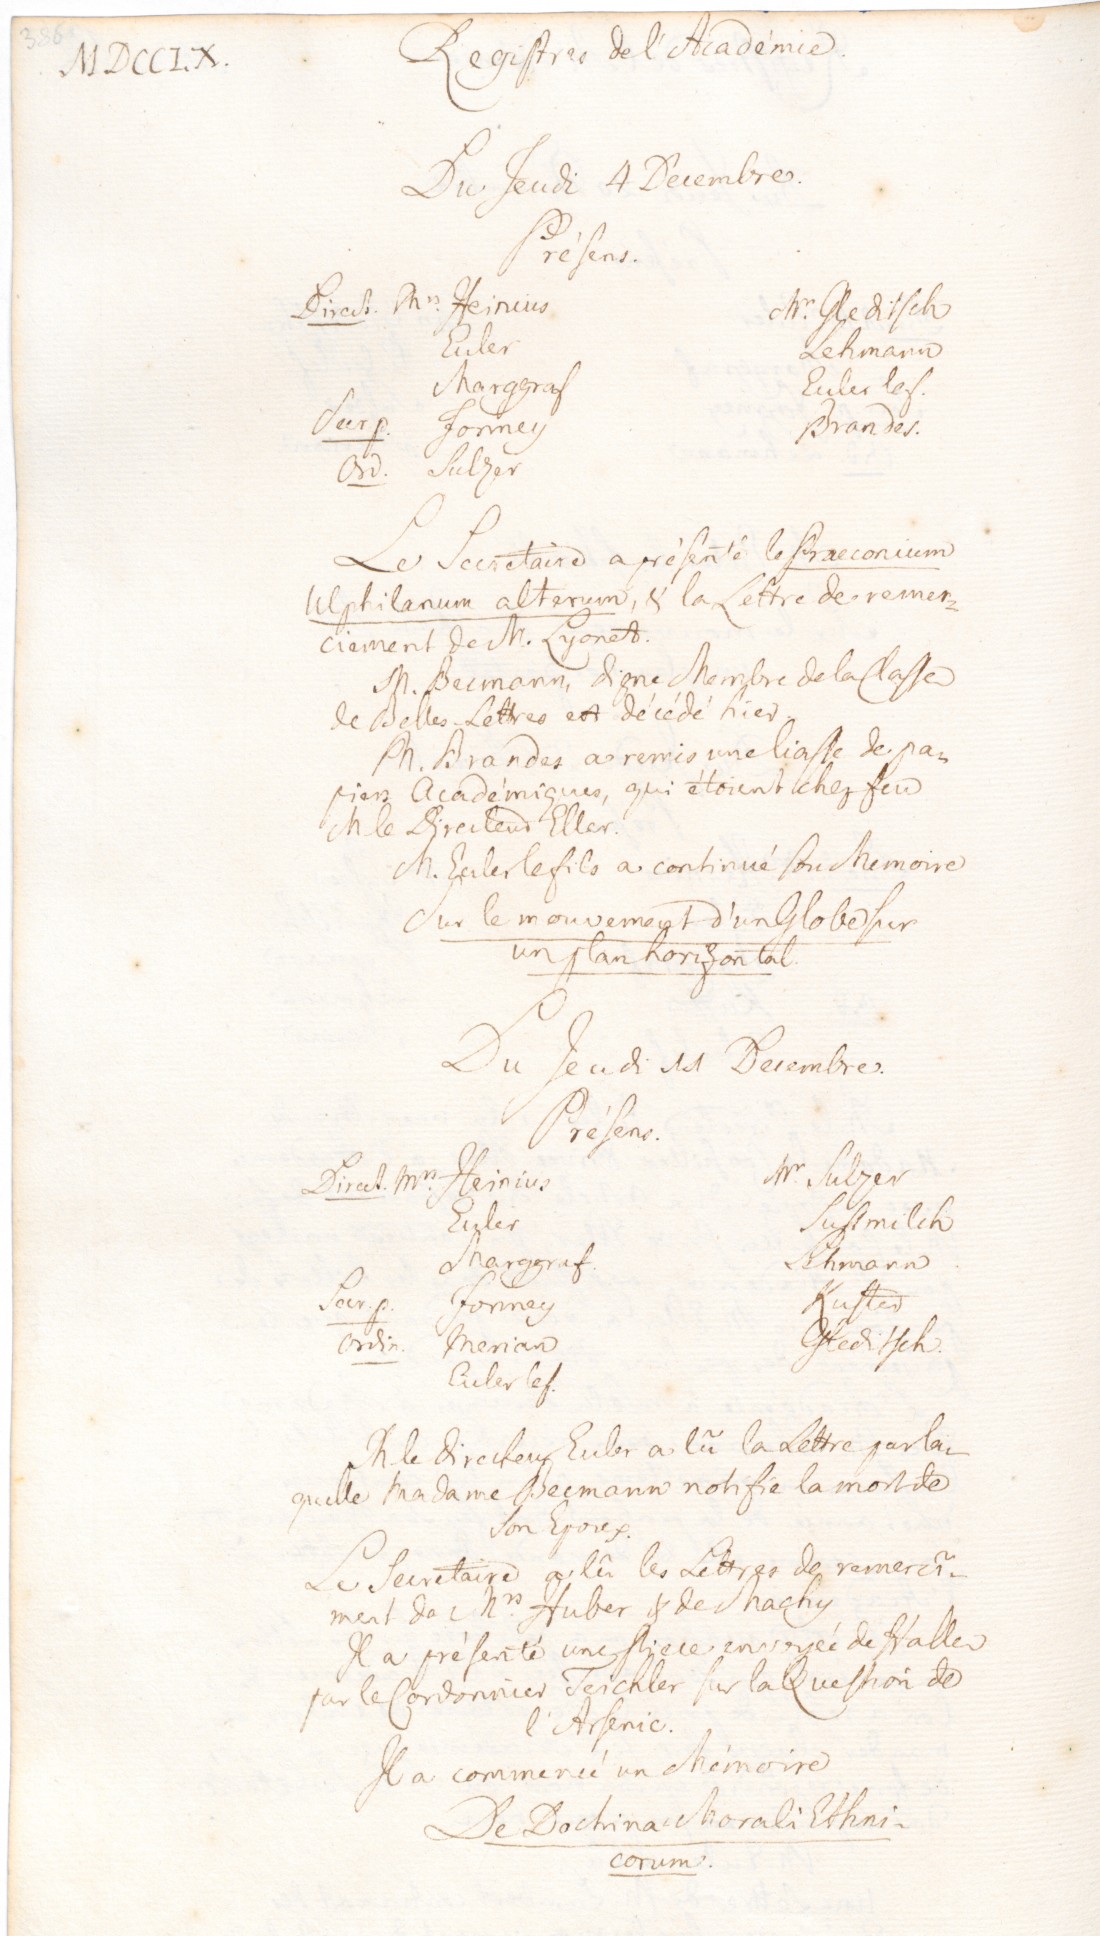 386
MDCCLX.
Registres de l'Académie.
Du Jeudi 4 Decembre.
Présens.
Direct. Mrs. Heinius
Euler
Marggraf
Secr. p. Formey
Ord. Sulzer
Mr. Gleditsch
Lehmann
Euler le f.
Brandes.
Le Secretaire a présenté le Praeconium
Ulphilanum alterum, & la Lettre de remer-
ciement de M. Lyonet.
M. Becmann, digne Membre de la Classe
de Belles-Lettres est décédé hier.
M. Brandes a remis une liasse de pa-
piers Académiques, qui étoient chez feu
M le Directeur Eller.
M. Euler le fils a continué son Memoire
Sur le mouvement d'un Globe sur
un plan horizontal.
Du Jeudi 11 Decembre.
Présens.
Direct. Mrs. Heinius
Euler
Marggraf.
Secr. p. Formey
Ordin. Merian
Euler le f.
Mr. Sulzer
Susmilch
Lehmann
Kuster
Gleditsch.
M le directeur Euler a lû la Lettre par la-
quelle Madame Becmann notifie la mort de
son Epoux.
Le Secretaire a lû les Lettres de remercî-
ment de Mrs. Huber & de Machy
Il a présenté une Piece envoyée de Halle
par le Cordonnier Teichler sur la Question de
l'Arsenic.
Il a commencé un Mémoire
De Doctrina Morali Ethni-
corum.